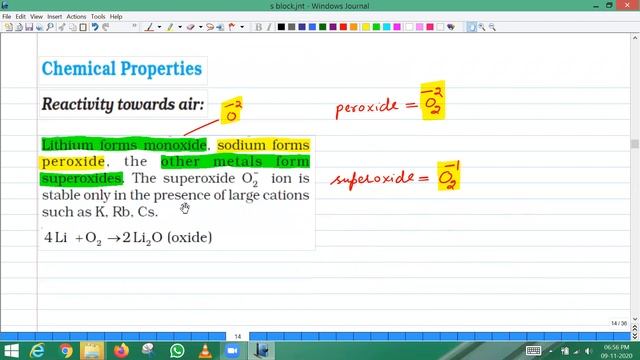 s block.jnt - Windows Journal
File Edit View Insert Actions Tools Help
Chemical Properties
Reactivity towards air:
O⁻²
peroxide = O₂⁻²
Lithium forms monoxide, sodium forms
peroxide, the other metals form
superoxides. The superoxide O₂⁻ ion is
stable only in the presence of large cations
such as K, Rb, Cs.
superoxide = O₂⁻¹
4 Li + O₂ → 2 Li₂O (oxide)
14 / 36
14
06:56 PM
09-11-2020